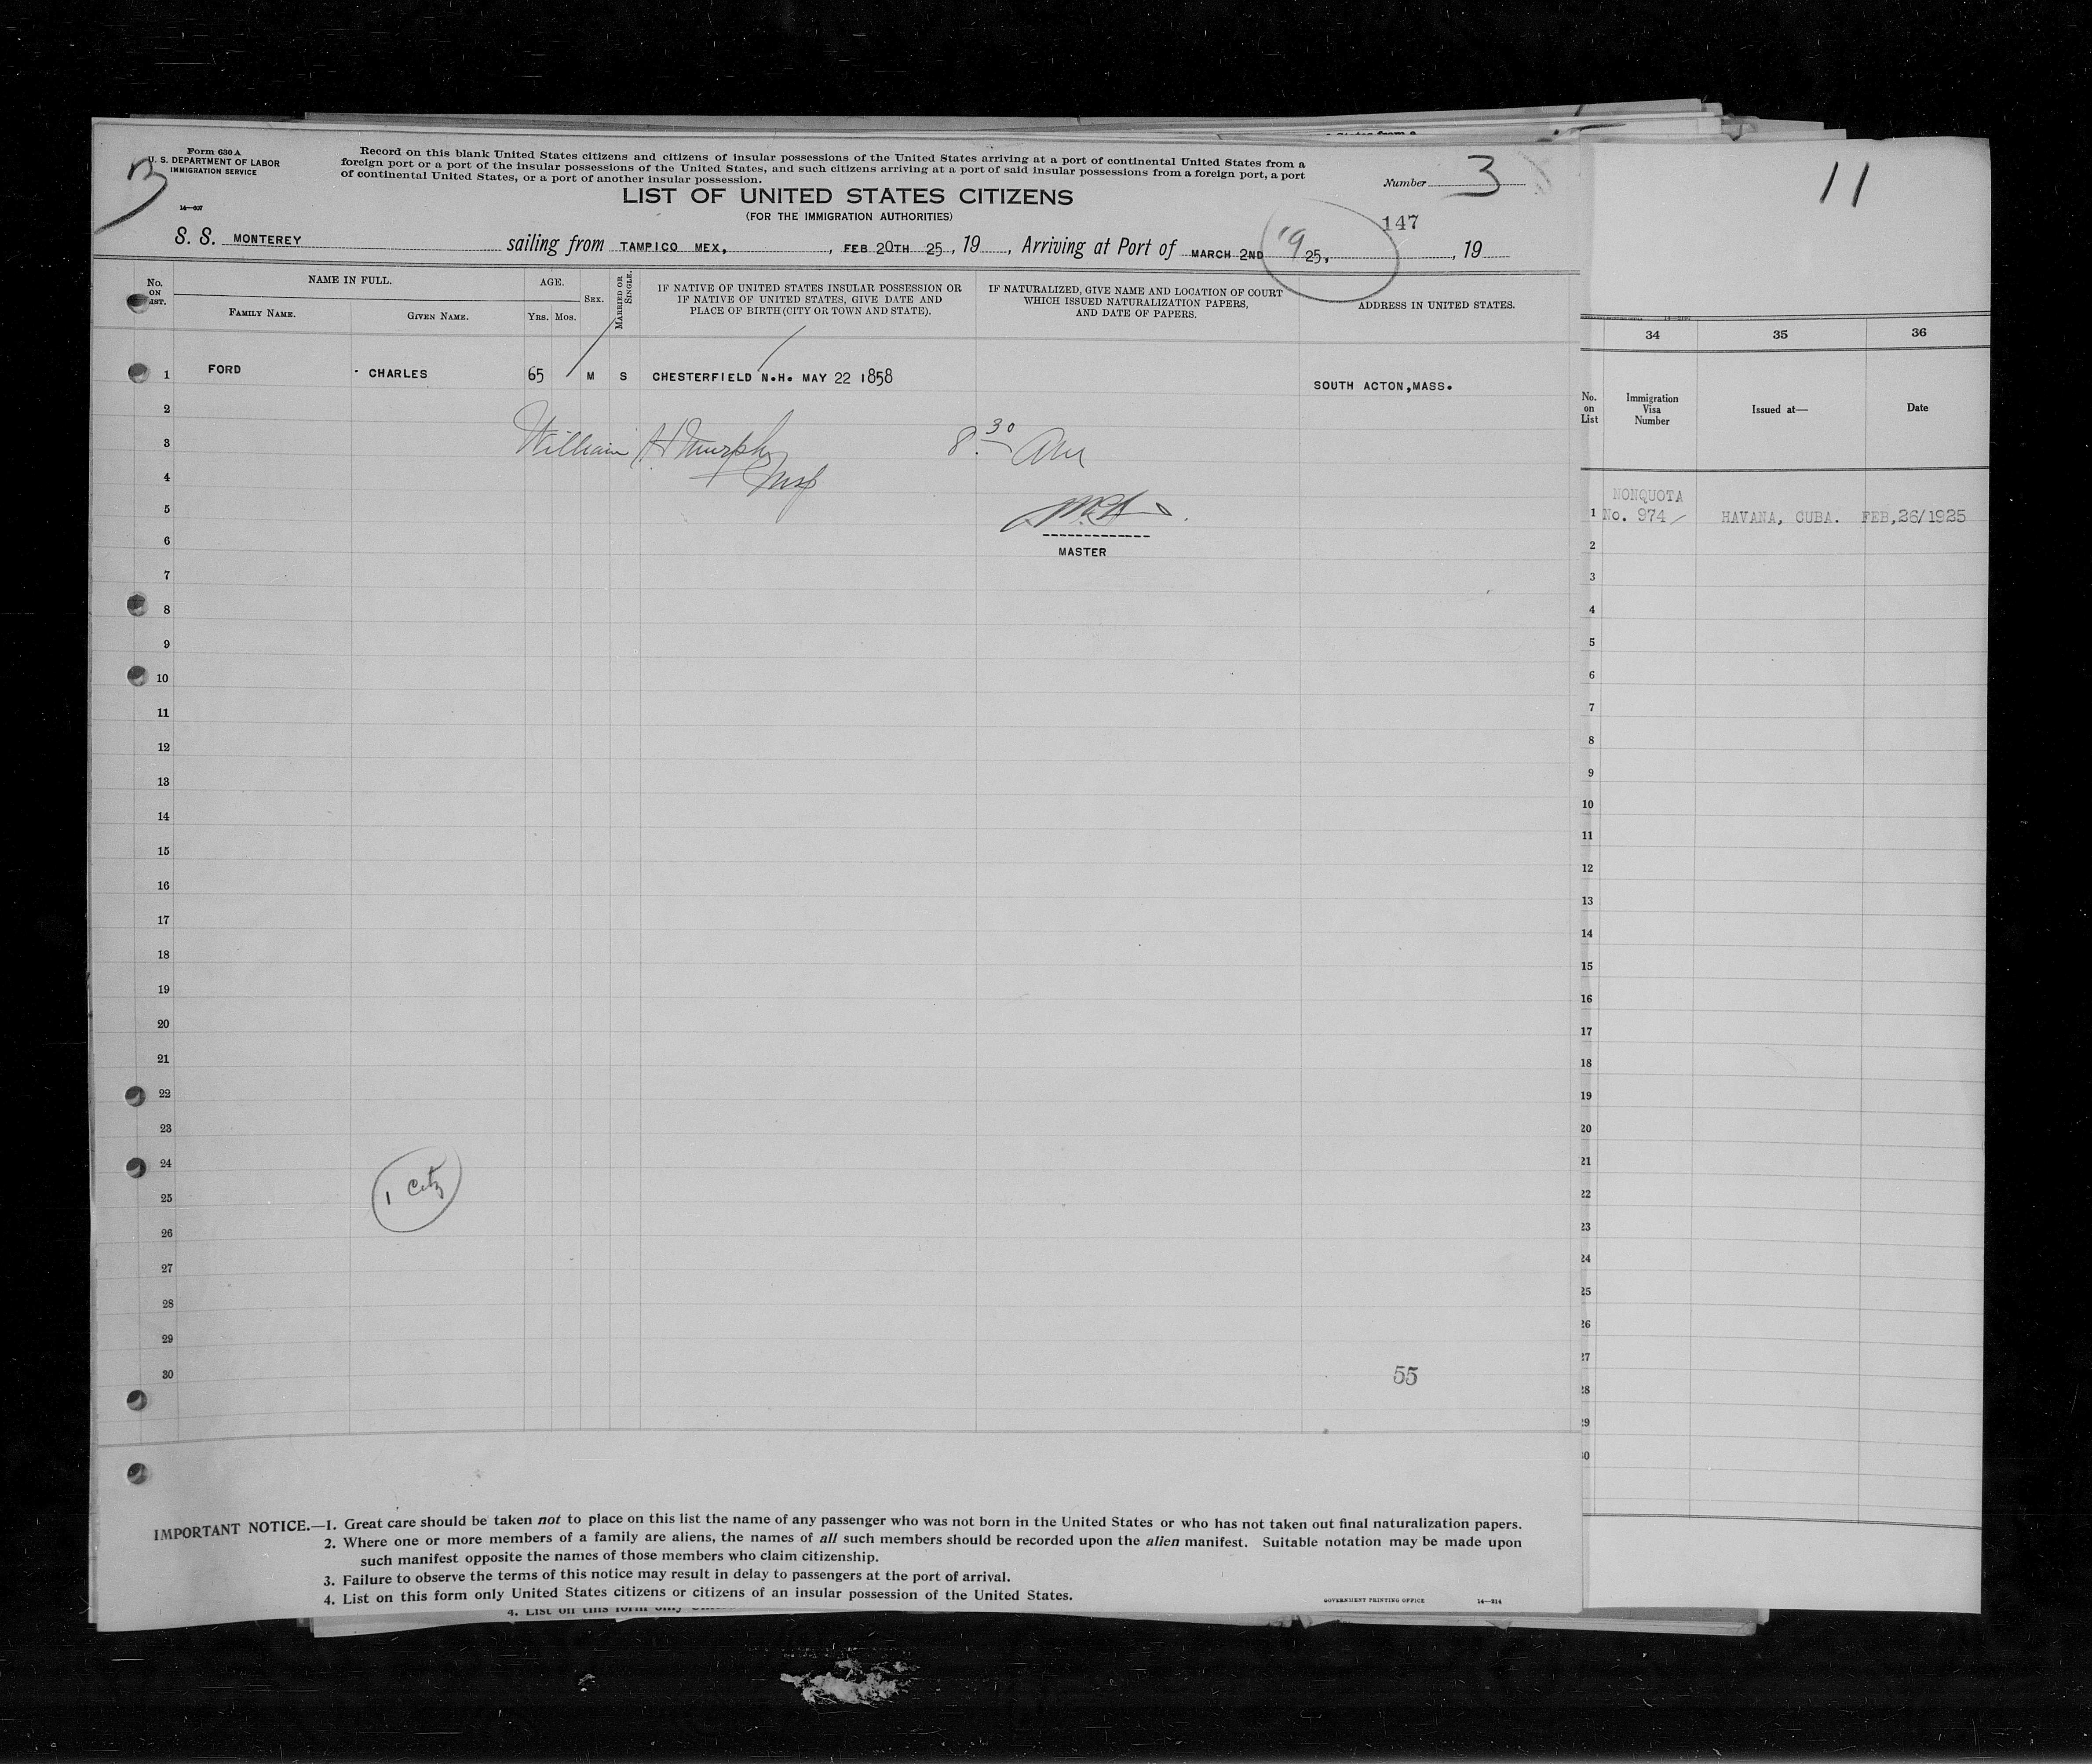 Form 630 A
U. S. DEPARTMENT OF LABOR
IMMIGRATION SERVICE
14—607
3
Record on this blank United States citizens and citizens of insular possessions of the United States arriving at a port of continental United States from a
foreign port or a port of the insular possessions of the United States, and such citizens arriving at a port of said insular possessions from a foreign port, a port
of continental United States, or a port of another insular possession.
Number 3
LIST OF UNITED STATES CITIZENS
(FOR THE IMMIGRATION AUTHORITIES)
147
S. S. MONTEREY sailing from TAMPICO MEX, , FEB 20TH 25 , 19 , Arriving at Port of MARCH 2ND 19 25, , 19
No. ON LIST.
NAME IN FULL.
FAMILY NAME.
GIVEN NAME.
AGE.
YRS. MOS.
SEX.
MARRIED OR SINGLE.
IF NATIVE OF UNITED STATES INSULAR POSSESSION OR
IF NATIVE OF UNITED STATES, GIVE DATE AND
PLACE OF BIRTH (CITY OR TOWN AND STATE).
IF NATURALIZED, GIVE NAME AND LOCATION OF COURT
WHICH ISSUED NATURALIZATION PAPERS,
AND DATE OF PAPERS.
ADDRESS IN UNITED STATES.
1 FORD CHARLES 65 M S CHESTERFIELD N.H. MAY 22 1858 SOUTH ACTON,MASS.
2
William H Murphy 8.30 AM
3
Insp
4
5
6
MASTER
7
8
9
10
11
12
13
14
15
16
17
18
19
20
21
22
23
24
1 Citz
25
26
27
28
29
30
55
IMPORTANT NOTICE.—1. Great care should be taken not to place on this list the name of any passenger who was not born in the United States or who has not taken out final naturalization papers.
2. Where one or more members of a family are aliens, the names of all such members should be recorded upon the alien manifest. Suitable notation may be made upon
such manifest opposite the names of those members who claim citizenship.
3. Failure to observe the terms of this notice may result in delay to passengers at the port of arrival.
4. List on this form only United States citizens or citizens of an insular possession of the United States.
GOVERNMENT PRINTING OFFICE 14—314
4. List on this form only
11
34 35 36
No. on List
Immigration Visa Number
Issued at—
Date
NONQUOTA
1 No. 974 HAVANA, CUBA. FEB,26/1925
2
3
4
5
6
7
8
9
10
11
12
13
14
15
16
17
18
19
20
21
22
23
24
25
26
27
28
29
30